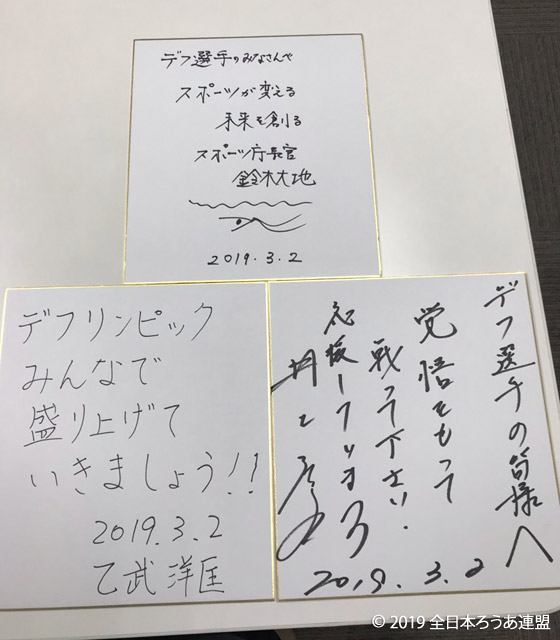 デフ選手のみなさんへ
スポーツが変える
未来を創る
スポーツ庁長官
鈴木大地
2019.3.2
デフリンピック
みんなで
盛り上げて
いきましょう!!
2019.3.2
乙武洋匡
デフ選手の皆様へ
覚悟をもって
戦って下さい!
応援して
2019.3.2
© 2019 全日本ろうあ連盟